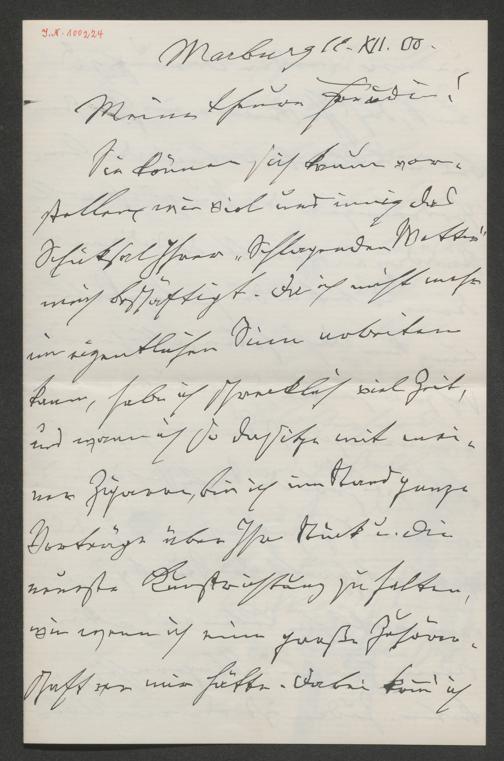 J.N. 100224
Marburg 12. XII. 00.
Meine theure Freundin!
Sie können sich kaum vor-
stellen, wie viel und innig das
Schicksal Ihrer „Schlagenden Wetter"
mich beschäftigt. Da ich nicht mehr
im eigentlichen Sinn arbeiten
kann, habe ich schrecklich viel Zeit,
und wenn ich so dasitze mit mei-
ner Zigarre, bin ich im Stand ganze
Vorträge über Ihr Stück u. die
neueste Kunstrichtung zu halten,
wie wenn ich eine große Zuhörer-
schaft vor mir hätte. Dabei komm' ich